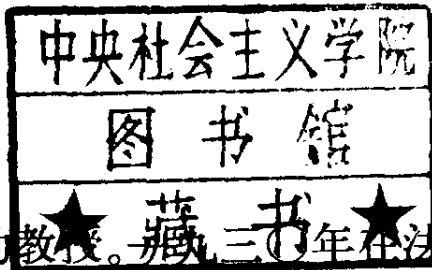 中央社会主义学院
图书馆
藏书
教授。一九三〇年在法